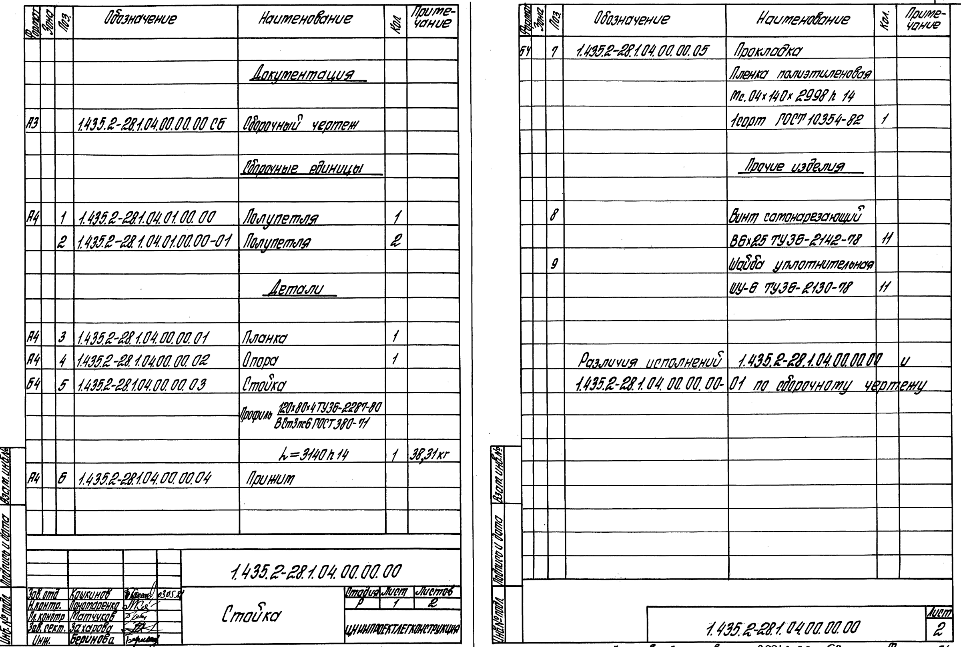 Формат Зона Поз. Обозначение Наименование Кол. Приме-чание
Документация
А3 1.435.2-28.1.04.00.00.00 СБ Сборочный чертеж
Сборочные единицы
А4 1 1.435.2-28.1.04.01.00.00 Полупетля 1
2 1.435.2-28.1.04.01.00.00-01 Полупетля 2
Детали
А4 3 1.435.2-28.1.04.00.00.01 Планка 1
А4 4 1.435.2-28.1.04.00.00.02 Опора 1
Б4 5 1.435.2-28.1.04.00.00.03 Стойка
Профиль 120х80х4 ТУ36-2287-80
ВСт3пс6 ГОСТ 380-71
L=3140 h14 1 38,31кг
А4 6 1.435.2-28.1.04.00.00.04 Прижим
Взам.инв.№
Подпись и дата
Инв.№ подл.
1.435.2-28.1.04.00.00.00
Зав. отд. Кружинов
Н.контр. Пономаренко
Гл.констр Матчуков
Зав. сект. Захарова
Инж.
Стойка
Стадия Лист Листов
Р 1 2
ЦНИИПРОЕКТЛЕГКОНСТРУКЦИЯ
Формат Зона Поз. Обозначение Наименование Кол. Приме-чание
БЧ 7 1.435.2-28.1.04.00.00.05 Прокладка
Пленка полиэтиленовая
Мс. 04х140х2998 h 14
1сорт ГОСТ 10354-82 1
Прочие изделия
8 Винт самонарезающий
В6х25 ТУ36-2142-78 11
9 Шайба уплотнительная
ШУ-6 ТУ36-2130-78 11
Различия исполнений 1.435.2-28.1.04.00.00.00 и
1.435.2-28.1.04.00.00.00-01 по сборочному чертежу
Взам.инв.№
Подпись и дата
Инв.№ подл.
1.435.2-28.1.04.00.00.00
Лист
2